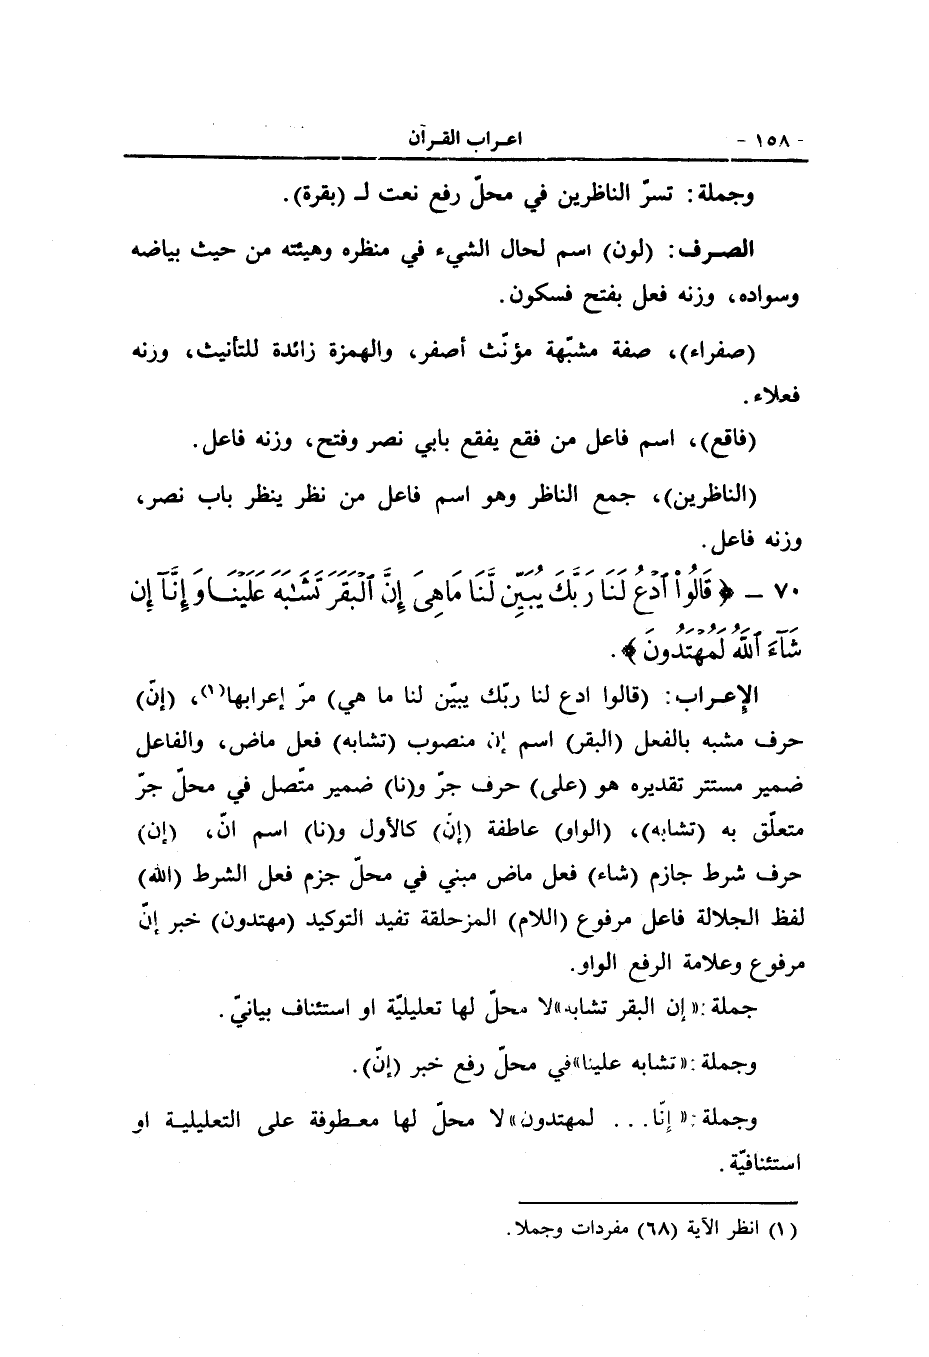 - ١٥٨ - اعـراب القـرآن
وجملة: تسرّ الناظرين في محلّ رفع نعت لـ (بقرة).
الصـرف: (لون) اسم لحال الشيء في منظره وهيئته من حيث بياضه
وسواده، وزنه فعل بفتح فسكون.
(صفراء)، صفة مشبّهة مؤنّث أصفر، والهمزة زائدة للتأنيث، وزنه
فعلاء.
(فاقع)، اسم فاعل من فقع يفقع بابي نصر وفتح، وزنه فاعل.
(الناظرين)، جمع الناظر وهو اسم فاعل من نظر ينظر باب نصر،
وزنه فاعل.
٧٠ - ﴿ قَالُوا۟ ٱدْعُ لَنَا رَبَّكَ يُبَيِّن لَّنَا مَا هِىَ إِنَّ ٱلْبَقَرَ تَشَـٰبَهَ عَلَيْنَا وَإِنَّآ إِن
شَآءَ ٱللَّهُ لَمُهْتَدُونَ ﴾.
الإعـراب: (قالوا ادع لنا ربّك يبيّن لنا ما هي) مرّ إعرابها(١)، (إنّ)
حرف مشبه بالفعل (البقر) اسم إن منصوب (تشابه) فعل ماض، والفاعل
ضمير مستتر تقديره هو (على) حرف جرّ و(نا) ضمير متّصل في محلّ جرّ
متعلّق به (تشابه)، (الواو) عاطفة (إنّ) كالأول و(نا) اسم انّ، (إن)
حرف شرط جازم (شاء) فعل ماض مبني في محلّ جزم فعل الشرط (الله)
لفظ الجلالة فاعل مرفوع (اللام) المزحلقة تفيد التوكيد (مهتدون) خبر إنّ
مرفوع وعلامة الرفع الواو.
جملة: «إن البقر تشابه» لا محلّ لها تعليليّة او استئناف بيانيّ.
وجملة: «تشابه علينا» في محلّ رفع خبر (إنّ).
وجملة: « إنّا... لمهتدون» لا محلّ لها معـطوفة على التعليليـة او
استئنافيّة.
(١) انظر الآية (٦٨) مفردات وجملا.